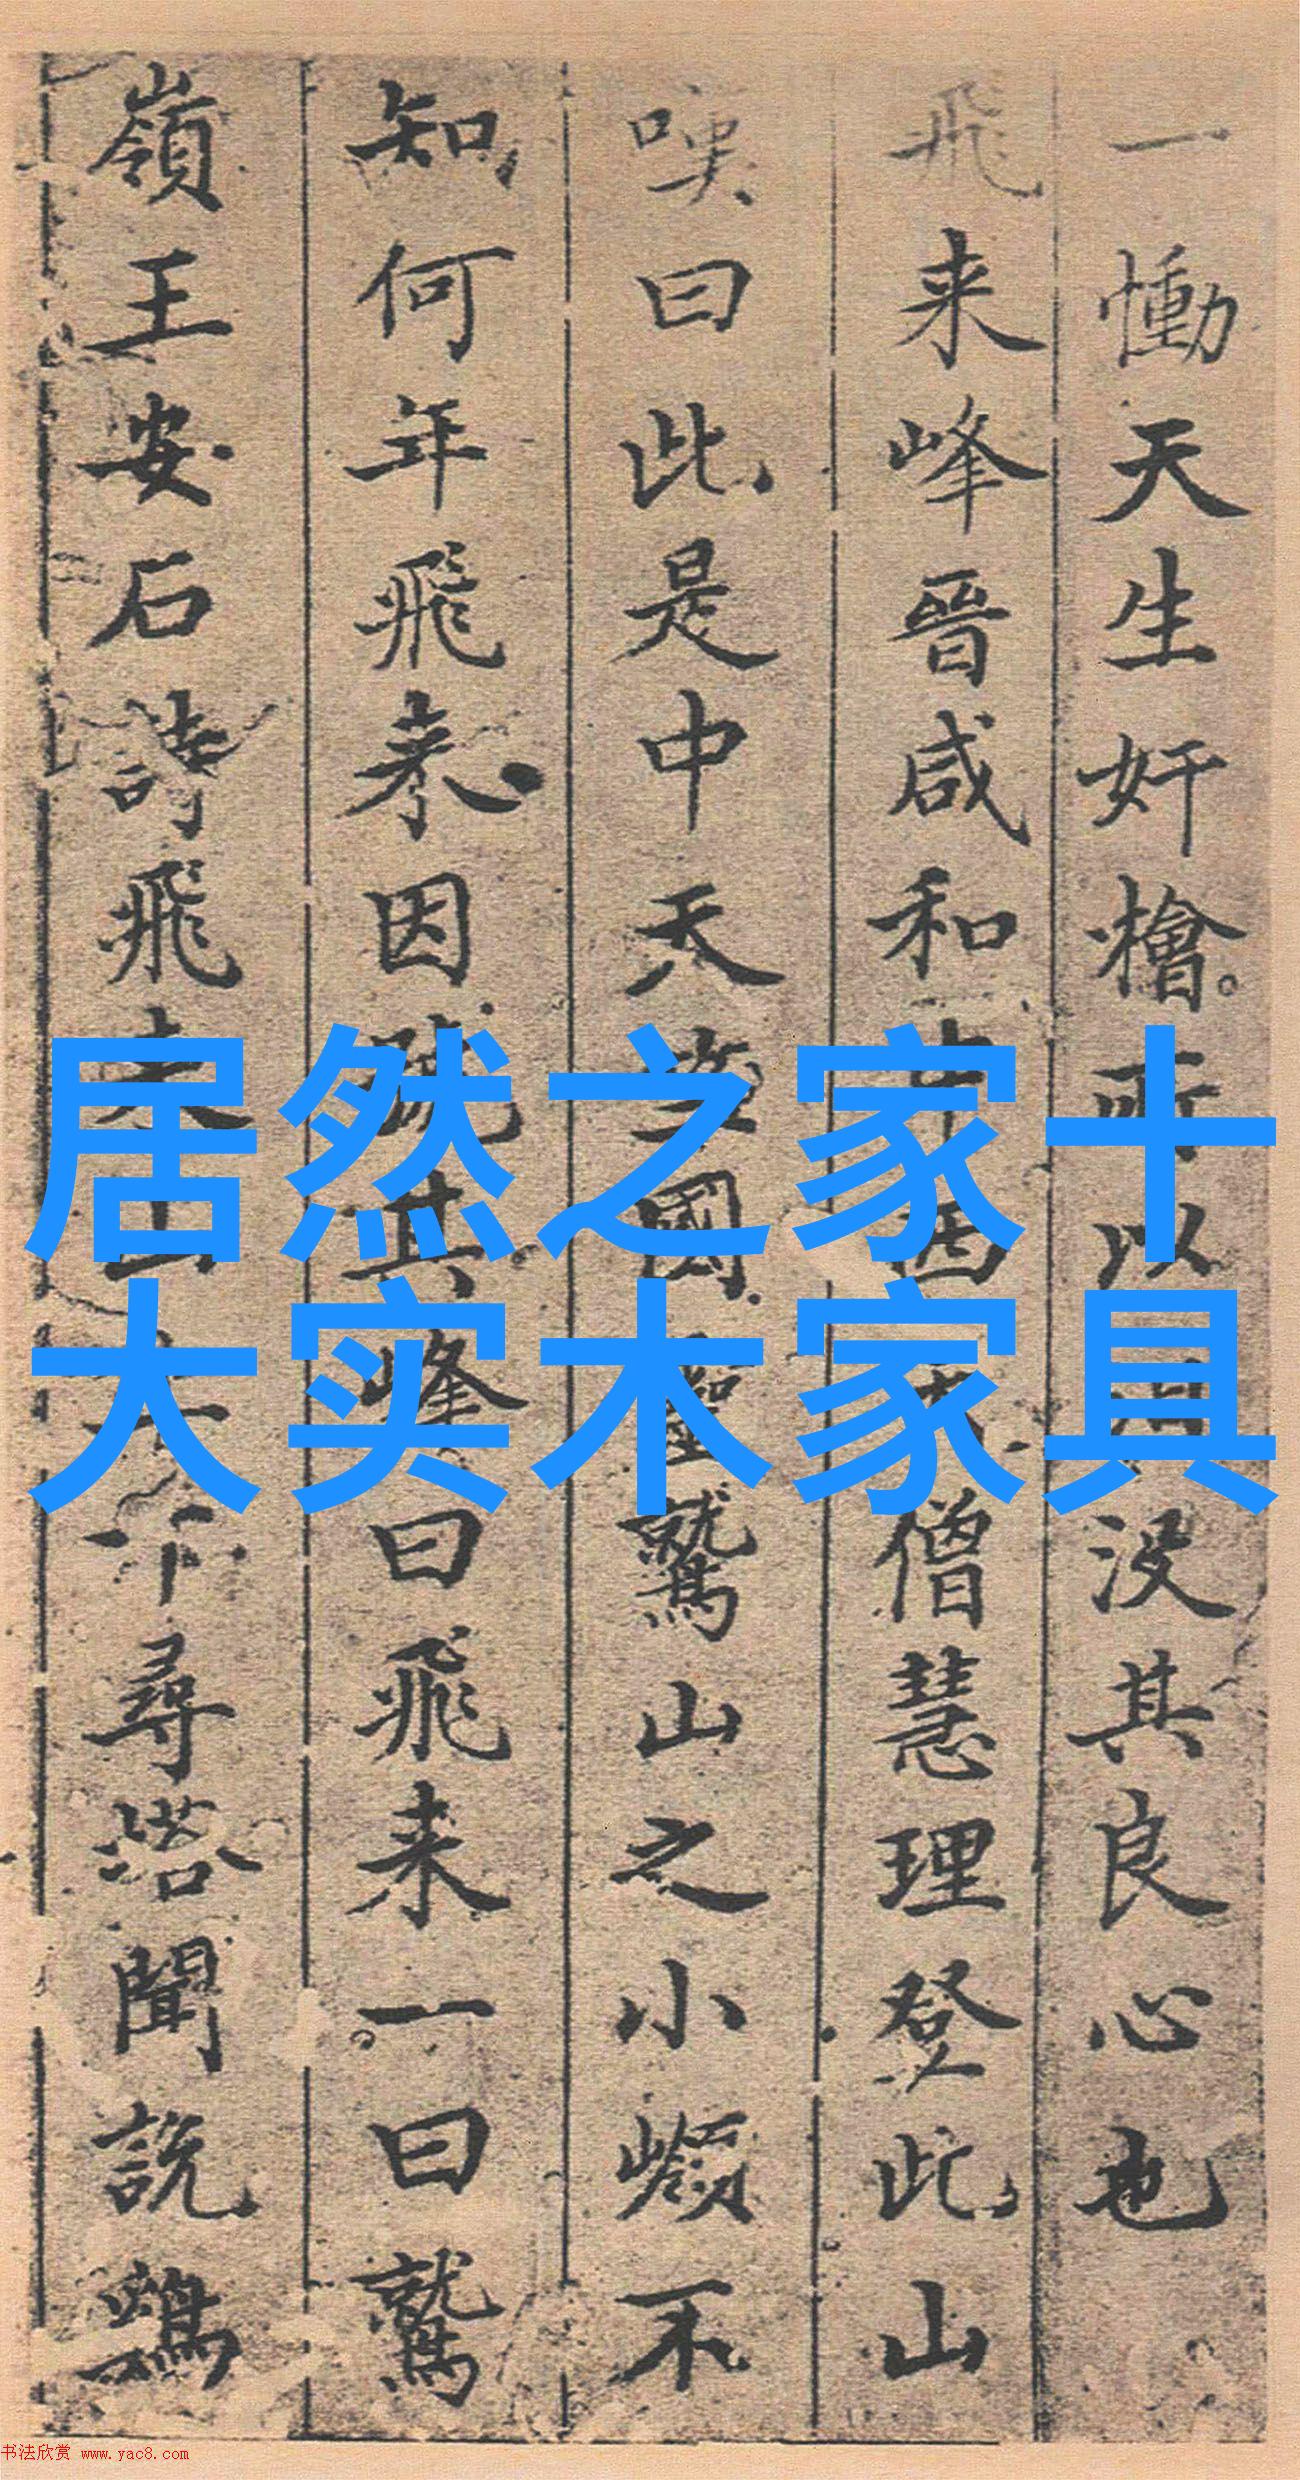 一慟天生奸檜所以没其良心也
飛来峰晉咸和中西天僧慧理登此山
嘆曰此是中天竺國靈鷲山之小嶺不
知何年飛来因號其峰曰飛来一曰鷲
嶺王安石詩飛来山上千尋塔聞説鷄
居然之家十
大实木家具
书法欣赏 www.yac8.com